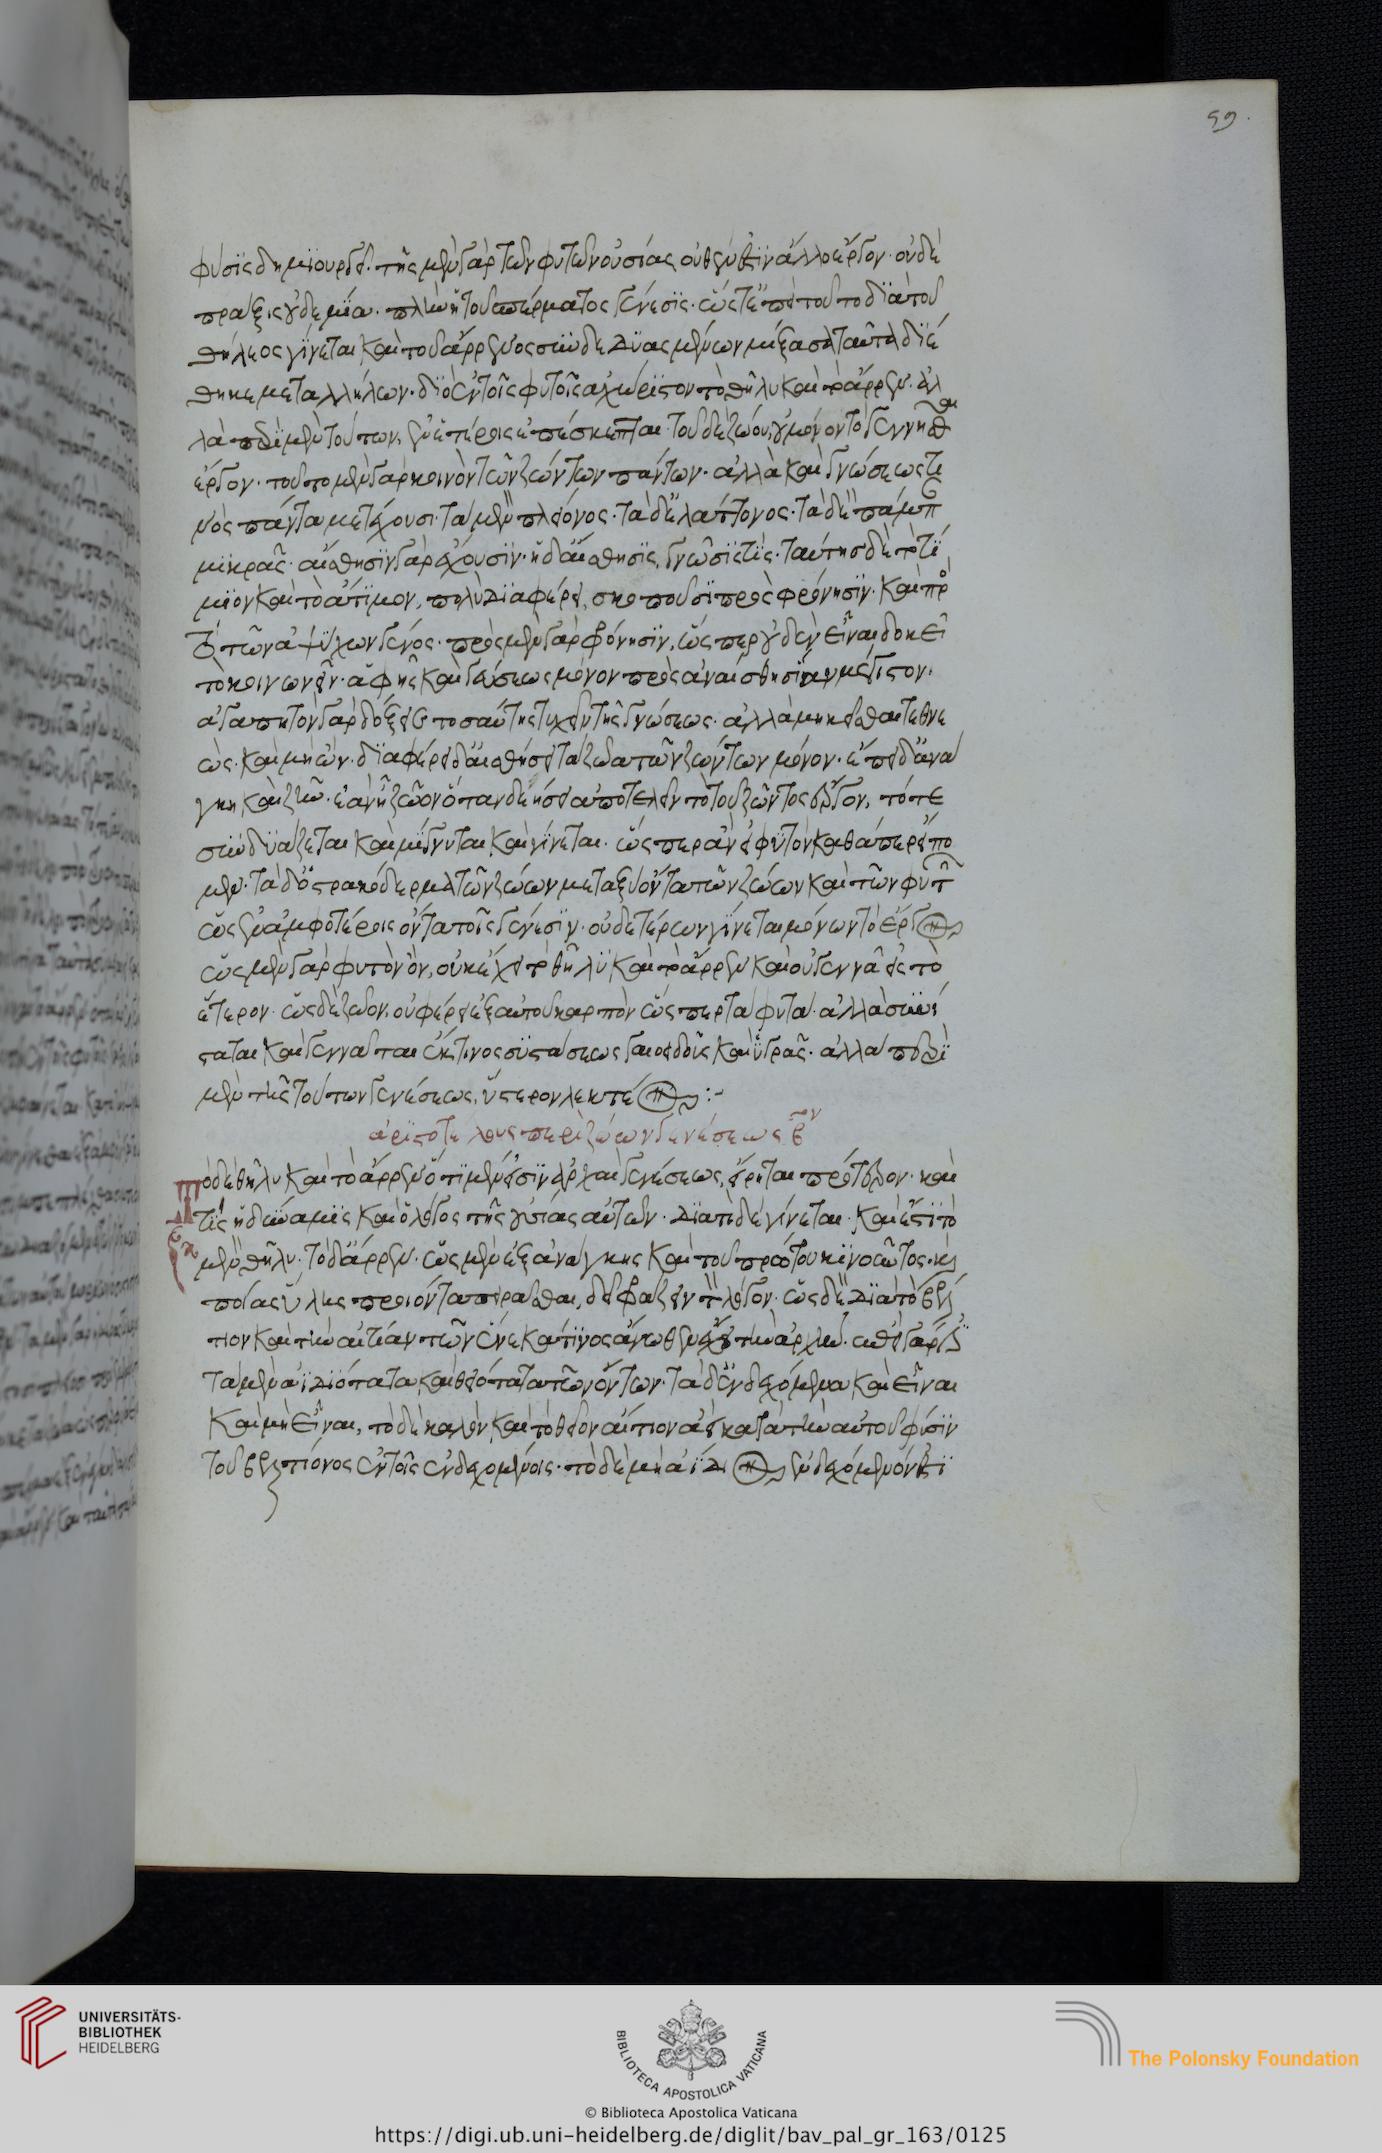 59.
φύσις δημιουργεῖ. τῆς μὲν γὰρ τῶν φυτῶν οὐσίας οὐθέν ἐστιν ἄλλο ἔργον· οὐδὲ
πρᾶξις οὐδεμία. πλὴν ἡ τοῦ σπέρματος γένεσις. ὥστ' ἐπεὶ τοῦτο διὰ τοῦ
θήλεος γίνεται καὶ τοῦ ἄρρενος συνδεδυασμένων μίξασα ταῦτα διέ
θηκε μετ' ἀλλήλων. διὸ ἐν τοῖς φυτοῖς ἀχώριστον τὸ θῆλυ καὶ τὸ ἄρρεν. ἀλ
λὰ περὶ μὲν τούτων, ἐν ἑτέροις ἐπέσκεπται. τοῦ δὲ ζώου, οὐ μόνον τὸ γεννῆσαι
ἔργον. τοῦτο μὲν γὰρ κοινὸν τῶν ζώντων πάντων. ἀλλὰ καὶ γνώσεώς τι
νὸς πάντα μετέχουσι. τὰ μὲν πλείονος. τὰ δ' ἐλάττονος. τὰ δὲ πάμπαν
μικρᾶς. αἴσθησιν γὰρ ἔχουσιν. ἡ δ' αἴσθησις, γνῶσίς τις. ταύτης δὲ τὸ τί
μιον καὶ τὸ ἄτιμον, πολὺ διαφέρει, σκοποῦσι πρὸς φρόνησιν. καὶ πρὸς
τὸ τῶν ἀψύχων γένος. πρὸς μὲν γὰρ φρόνησιν, ὥσπερ οὐδὲν εἶναι δοκεῖ
τὸ κοινωνεῖν ἁφῆς καὶ γεύσεως μόνον πρὸς ἀναισθησίαν μέγιστον.
ἀγαπητὸν γὰρ δόξει τὸ ταύτης τυχεῖν τῆς γνώσεως. ἀλλὰ μὴ κεῖσθαι τεθνε
ὼς. καὶ μὴ ὄν. διαφέρει δ' αἰσθήσει τὰ ζῶα τῶν ζώντων μόνον. ἐπεὶ δ' ἀνά
γκη καὶ ζῆν. ἐὰν ᾖ ζῶον ὅταν δεήσει ἀποτελεῖν τὸ τοῦ ζῶντος ἔργον, τότε
συνδυάζεται καὶ μίγνυται καὶ γίνεται. ὥσπερ ἂν εἰ φυτὸν καθάπερ εἴπο
μεν. τὰ δ' ὀστρακόδερμα τῶν ζώων μεταξὺ ὄντα τῶν ζώων καὶ τῶν φυτῶν
ὡς ἐν ἀμφοτέροις ὄντα τοῖς γένεσιν. οὐδετέρων γίνεται μόνων τὸ ἔργον
ὡς μὲν γὰρ φυτὸν ὂν, οὐκ ἔχει τὸ θῆλυ καὶ τὸ ἄρρεν καὶ οὐ γεννᾶ εἰς τὸ
ἕτερον. ὡς δὲ ζῶον, οὐ φέρει ἐξ αὑτοῦ καρπὸν ὥσπερ τὰ φυτά. ἀλλὰ συνί
σταται καὶ γεννᾶται ἔκ τινος συστάσεως γαιοειδοῦς καὶ ὑγρᾶς. ἀλλὰ περὶ
μὲν τῆς τούτων γενέσεως, ὕστερον λεκτέον :~
ἀριστοτέλους περὶ ζώων γενέσεως β
Τὸ δὲ θῆλυ καὶ τὸ ἄρρεν ὅτι μέν εἰσιν ἀρχαὶ γενέσεως, εἴρηται πρότερον. καὶ
τίς ἡ δύναμις καὶ ὁ λόγος τῆς οὐσίας αὐτῶν. διὰ τί δὲ γίνεται. καὶ ἔστι τὸ
μὲν θῆλυ. τὸ δ' ἄρρεν. ὡς μὲν ἐξ ἀνάγκης καὶ τοῦ πρώτου κινοῦντος. καὶ
ποίας ὕλης προιόντα πειρᾶσθαι, δεῖ φράζειν τὸν λόγον. ὡς δὲ διὰ τὸ βέλ
τιον καὶ τὴν αἰτίαν τῶν ἕνεκά τινος ἄνωθεν ἔχει τὴν ἀρχήν. ἐπεὶ γάρ ἐστι
τὰ μὲν ἀιδιότατα καὶ θειότατα τῶν ὄντων. τὰ δ' ἐνδεχόμενα καὶ εἶναι
καὶ μὴ εἶναι, τὸ δὲ καλὸν καὶ τὸ θεῖον αἴτιον ἀεὶ κατὰ τὴν αὑτοῦ φύσιν
τοῦ βελτίονος ἐν τοῖς ἐνδεχομένοις. τὸ δὲ μὴ ἀίδιον ἐνδεχόμενόν ἐστι
UNIVERSITÄTS-
BIBLIOTHEK
HEIDELBERG
BIBLIOTECA APOSTOLICA VATICANA
The Polonsky Foundation
© Biblioteca Apostolica Vaticana
https://digi.ub.uni-heidelberg.de/diglit/bav_pal_gr_163/0125